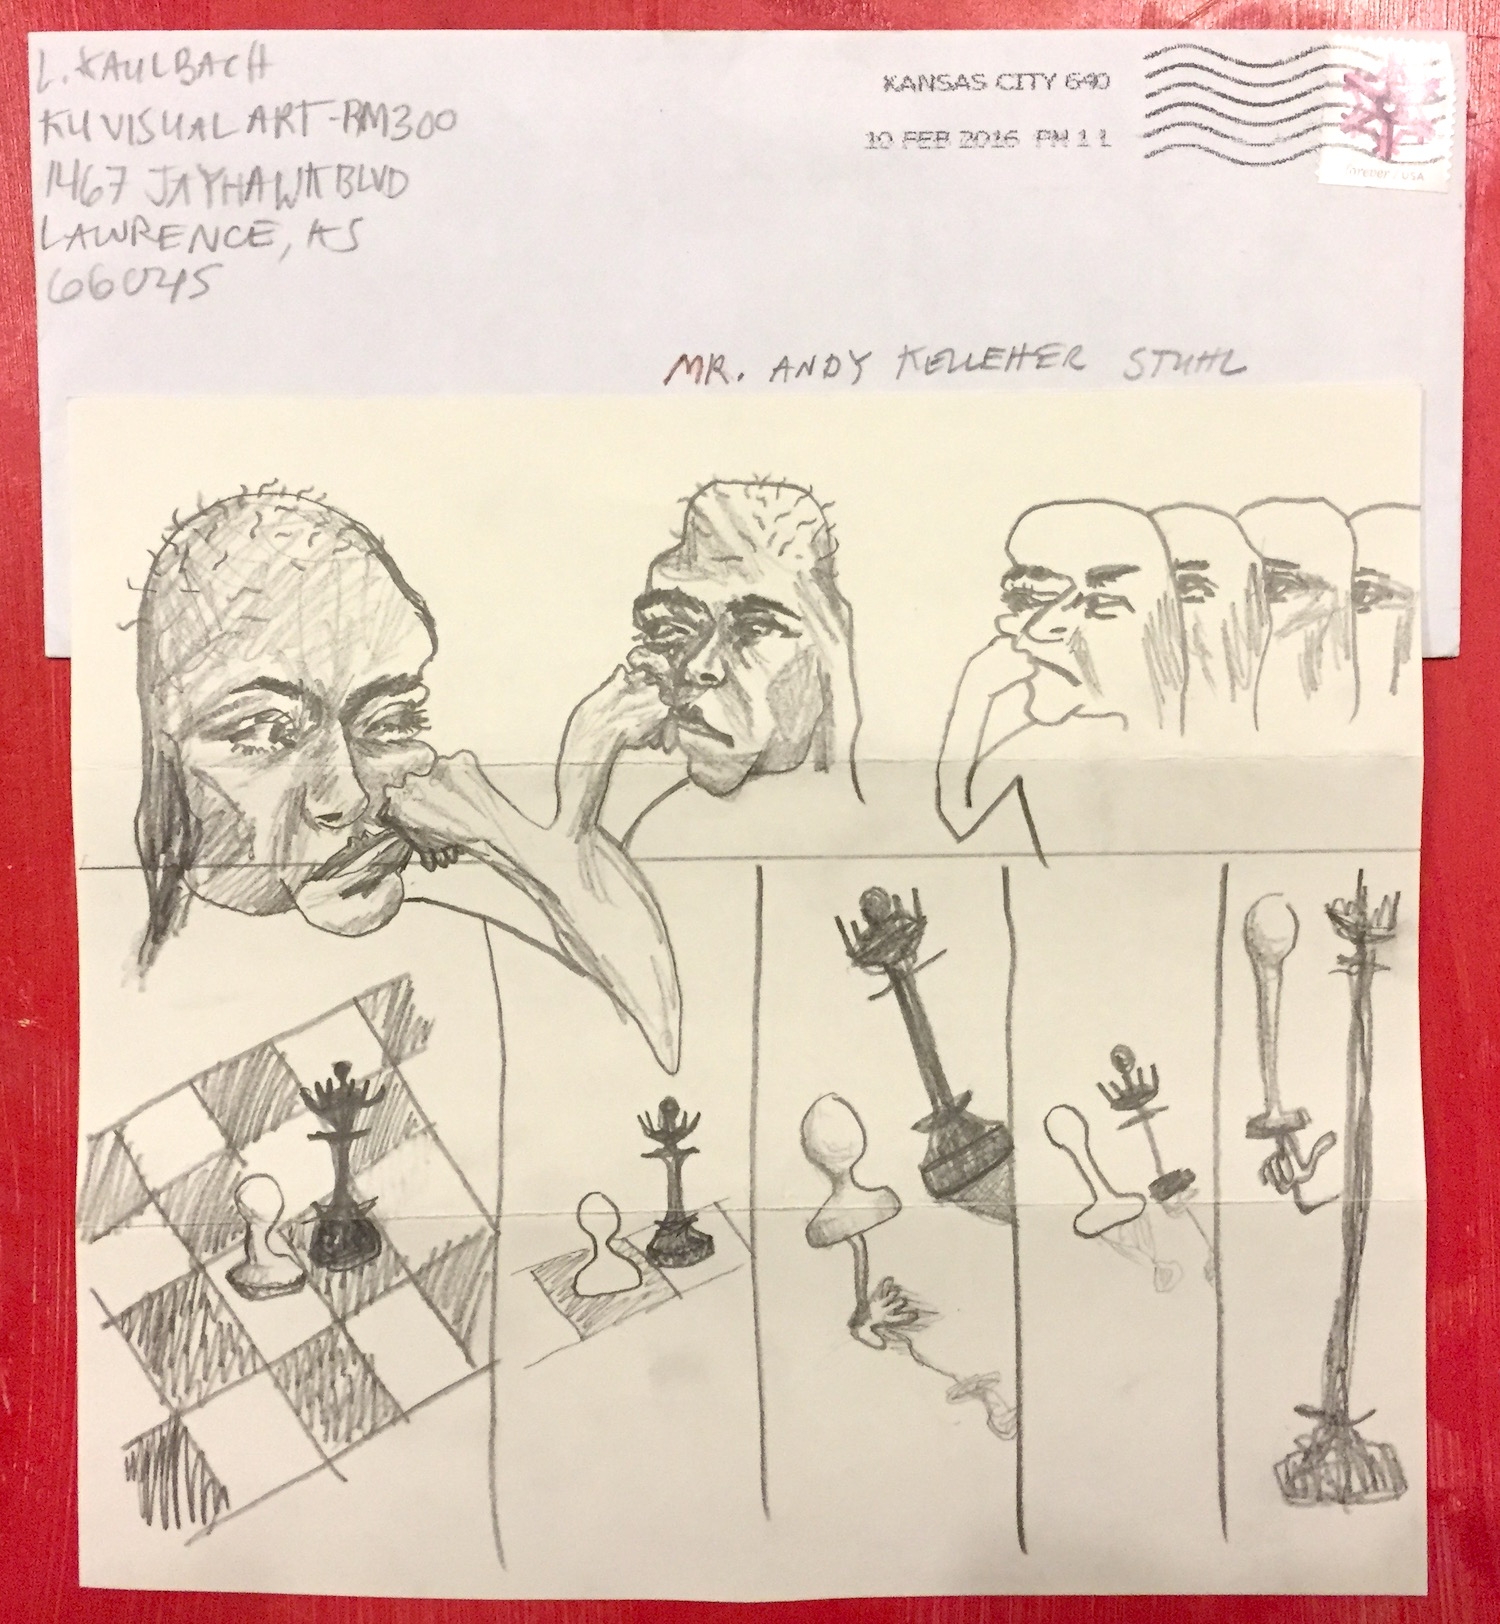 L. KAULBACH
KU VISUAL ART-RM300
1467 JAYHAWK BLVD
LAWRENCE, KS
66045
KANSAS CITY 640
10 FEB 2016 PM 1 L
forever / USA
MR. ANDY KELLEHER STUHL